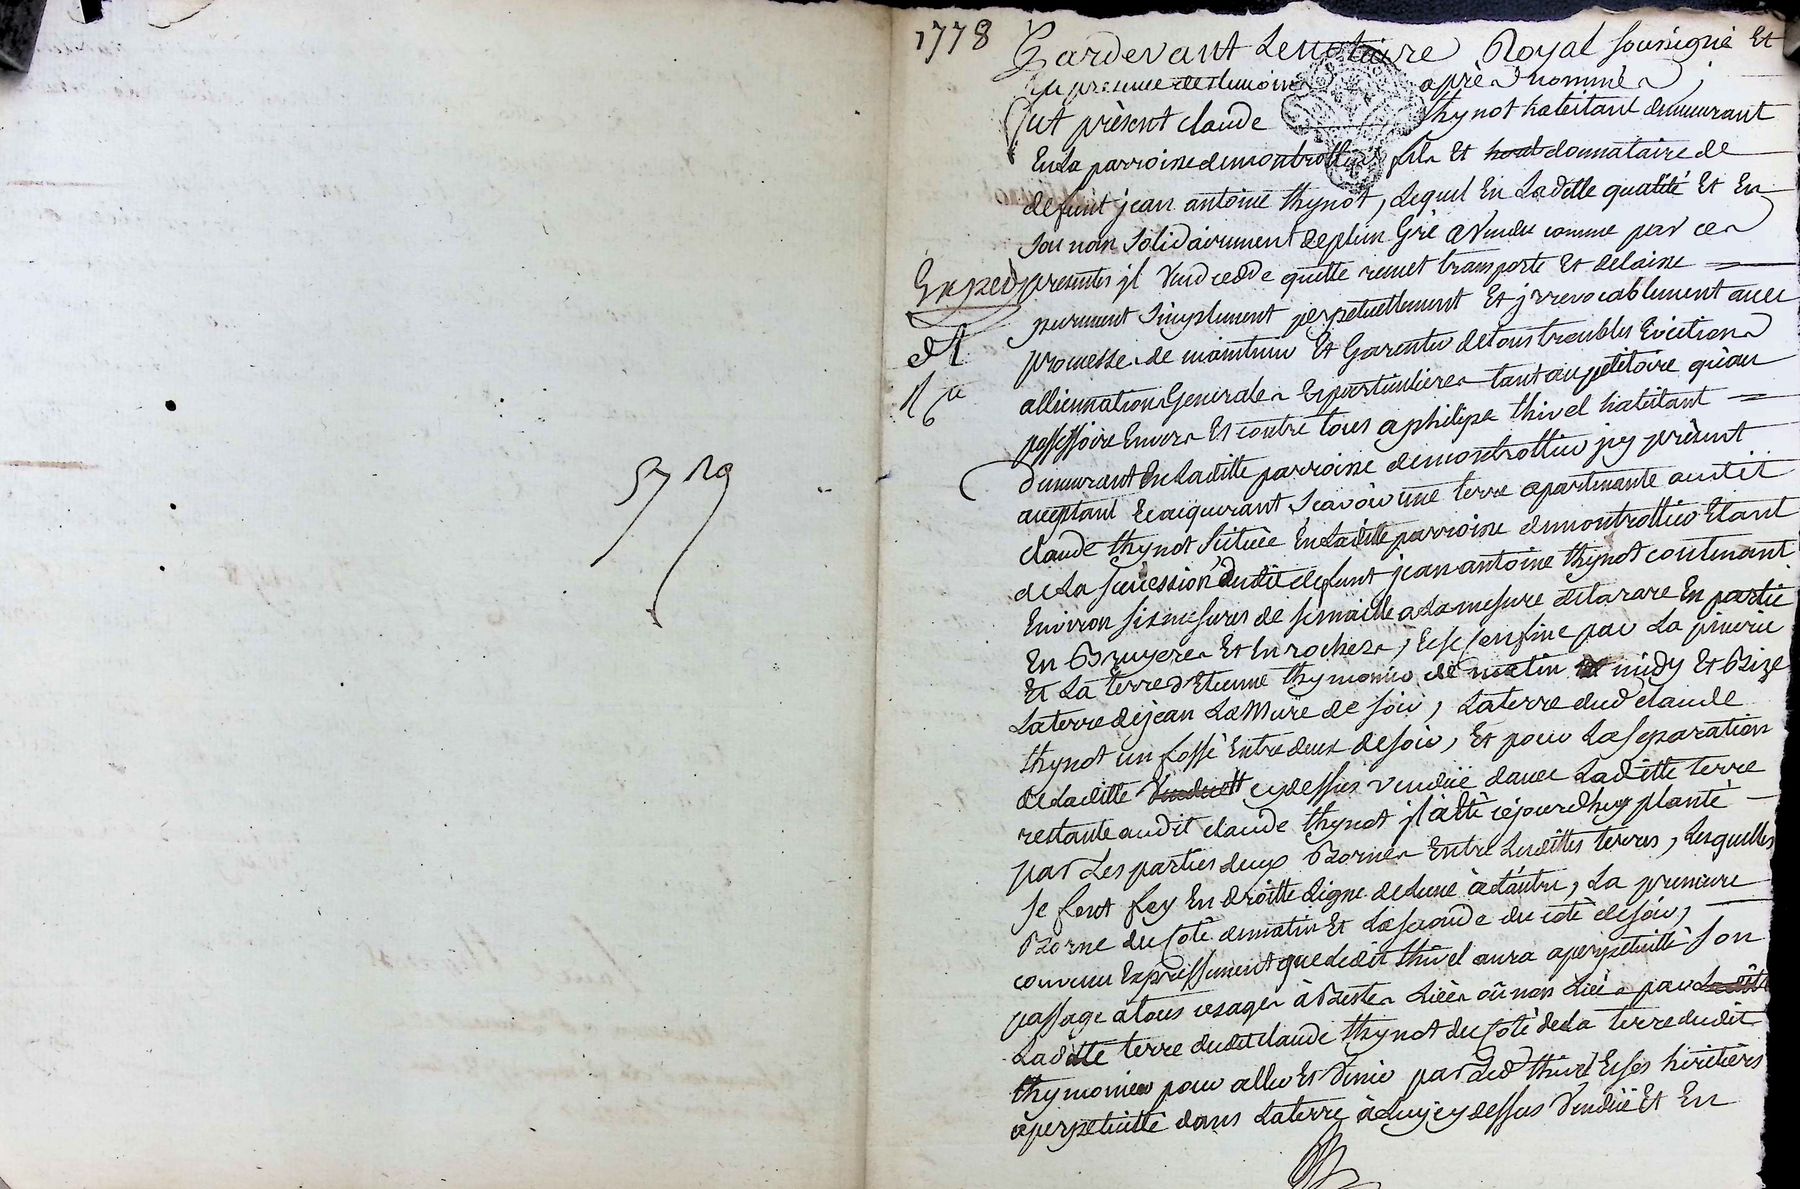 5719
1778
Pardevant Le notaire Royal soussigné Et
En presence des temoins après nommés ,
fut prèsent claude thynot habitant demeurant
En La parroisse de montrottier fils Et donnataire de
defunt jean antoine thynot, Lequel En Laditte qualité Et En
son nom solidairement de plein Gré a Vendu comme par ces
Exped presentes jl Vend cedde quitte remet transporte Et delaisse
purement Simplement perpetuellement Et jrrevocablement avec
promesse de maintenir Et Garentir de tous troubles Evictions
alliennations Generales Et particulieres tant au petitoire qu'au
possessoire Envers Et contre tous a philipe thivel habitant
demeurant En Laditte parroisse de montrottier jcy prèsent
acceptant Et acquerant Scavoir une terre apartenante audit
claude thynot Scituée En Laditte parroisse de montrottier Etant
de La succession dudit defunt jean antoine thynot contenant
Environ six mesures de semaille a La mesure de tarare En partie
En Bruyeres Et En rochers, Et se confine par La
Et La terre d'Etienne thymonier de matin midy Et Bize
La terre de jean La Mure de soir, La terre dud claude
thynot un fossé Entre deux de soir, Et pour La Separation
de Laditte cy dessus venduë d'avec Laditte terre
restante audit claude thynot jl a Eté cejourd'huy planté
par Les parties deux Bornes Entre Lesdittes terres, Lesquelles
se font foy En droitte Ligne de L'une à L'autre, La premiere
Borne du coté de matin Et La seconde du coté de soir,
convenu Expressement que ledit thivel aura a perpetuitté son
passage a tous usages à Bestes Liées oû non Liées par
Laditte terre dudit claude thynot du Coté de La terre dudit
thymonier pour aller Et Venir par Led thivel Et ses hèritiers
à perpetuitté dans La terre à Luy cy dessus Venduë Et En